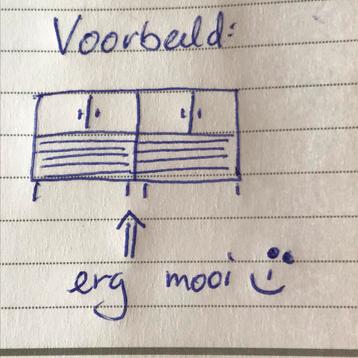 Voorbeeld:
erg mooi